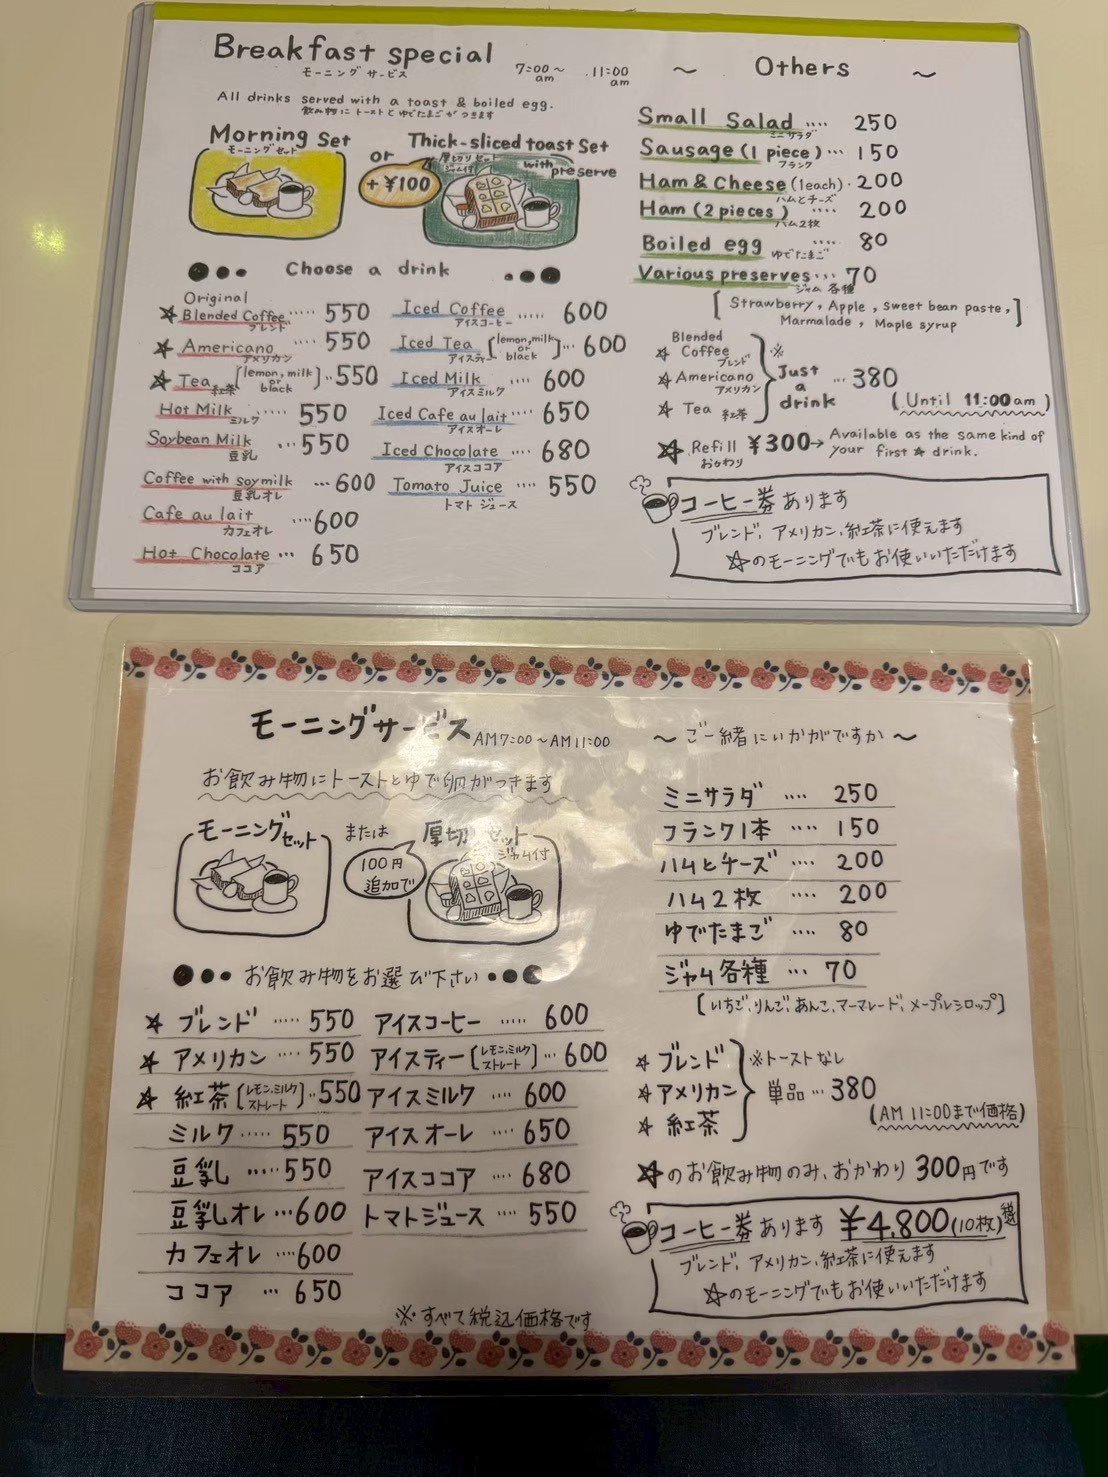 Breakfast special
モーニング サービス
7:00～ 11:00
am am
All drinks served with a toast & boiled egg.
飲み物に トーストと ゆでたまごが つきます
Morning Set
モーニングセット
or
+ ¥100
Thick-sliced toast Set
厚切りセット
ジャム付
with preserve
●●• Choose a drink •●●
Original
☆ Blended Coffee ····· 550
ブレンド
☆ Americano ···· 550
アメリカン
☆ Tea 紅茶 [lemon, milk or black] ··550
Hot Milk ···· 550
ミルク
Soybean Milk ··· 550
豆乳
Coffee with soymilk ··· 600
豆乳オレ
Cafe au lait ····600
カフェオレ
Hot Chocolate ··· 650
ココア
Iced Coffee ····· 600
アイスコーヒー
Iced Tea [lemon, milk or black]··· 600
アイスティー
Iced Milk ···· 600
アイスミルク
Iced Cafe au lait ···· 650
アイスオーレ
Iced Chocolate ···· 680
アイスココア
Tomato Juice ···· 550
トマト ジュース
～ Others ～
Small Salad ···· 250
ミニサラダ
Sausage (1 piece) ··· 150
フランク
Ham & Cheese (1each) · 200
ハムとチーズ
Ham (2 pieces) ···· 200
ハム2枚
Boiled egg ···· 80
ゆでたまご
Various preserves ··· 70
ジャム 各種
[Strawberry, Apple, sweet bean paste,
Marmalade, Maple syrup]
☆ Blended Coffee
ブレンド
☆ Americano
アメリカン
☆ Tea 紅茶
※ Just a drink ··· 380
(Until 11:00am)
☆ Refill ¥300→ Available as the same kind of
おかわり your first ☆ drink.
コーヒー券あります
ブレンド、アメリカン、紅茶に使えます
☆のモーニングでもお使いいただけます
モーニングサービス AM7:00～AM11:00
お飲み物にトーストとゆで卵がつきます
モーニングセット
または
100円
追加で
厚切りセット
ジャム付
●●• お飲み物をお選び下さい •●●
☆ ブレンド ····· 550
☆ アメリカン ···· 550
☆ 紅茶 [レモン、ミルク ストレート] ··550
ミルク ····· 550
豆乳 ····· 550
豆乳オレ ···600
カフェオレ ····600
ココア ··· 650
アイスコーヒー ····· 600
アイスティー [レモン、ミルク ストレート] ··· 600
アイスミルク ···· 600
アイスオーレ ···· 650
アイスココア ···· 680
トマトジュース ···· 550
※すべて税込価格です
～ ご一緒にいかがですか ～
ミニサラダ ···· 250
フランク1本 ···· 150
ハムとチーズ ···· 200
ハム2枚 ···· 200
ゆでたまご ···· 80
ジャム各種 ··· 70
[いちご、りんご、あんこ、マーマレード、メープルシロップ]
☆ ブレンド
☆ アメリカン
☆ 紅茶
※トーストなし
単品 ··· 380
(AM 11:00まで価格)
☆のお飲み物のみ、おかわり 300円です
コーヒー券あります ¥4,800(10枚)
ブレンド、アメリカン、紅茶に使えます
☆のモーニングでもお使いいただけます